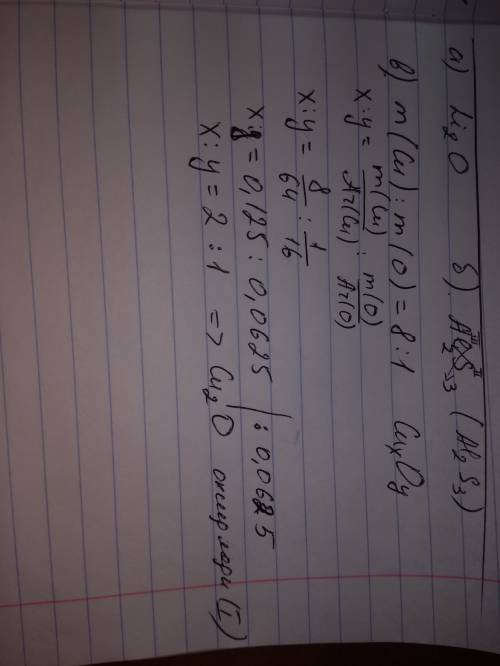 а) Li₂O б) Al₂S₃ (Al₂S₃)
в) m(Cu) : m(O) = 8:1 CuxOy
x:y = m(Cu)/Ar(Cu) : m(O)/Ar(O)
x:y = 8/64 : 1/16
x:y = 0,125 : 0,0625 | : 0,0625
x:y = 2:1 => Cu₂O оксид меди (I)